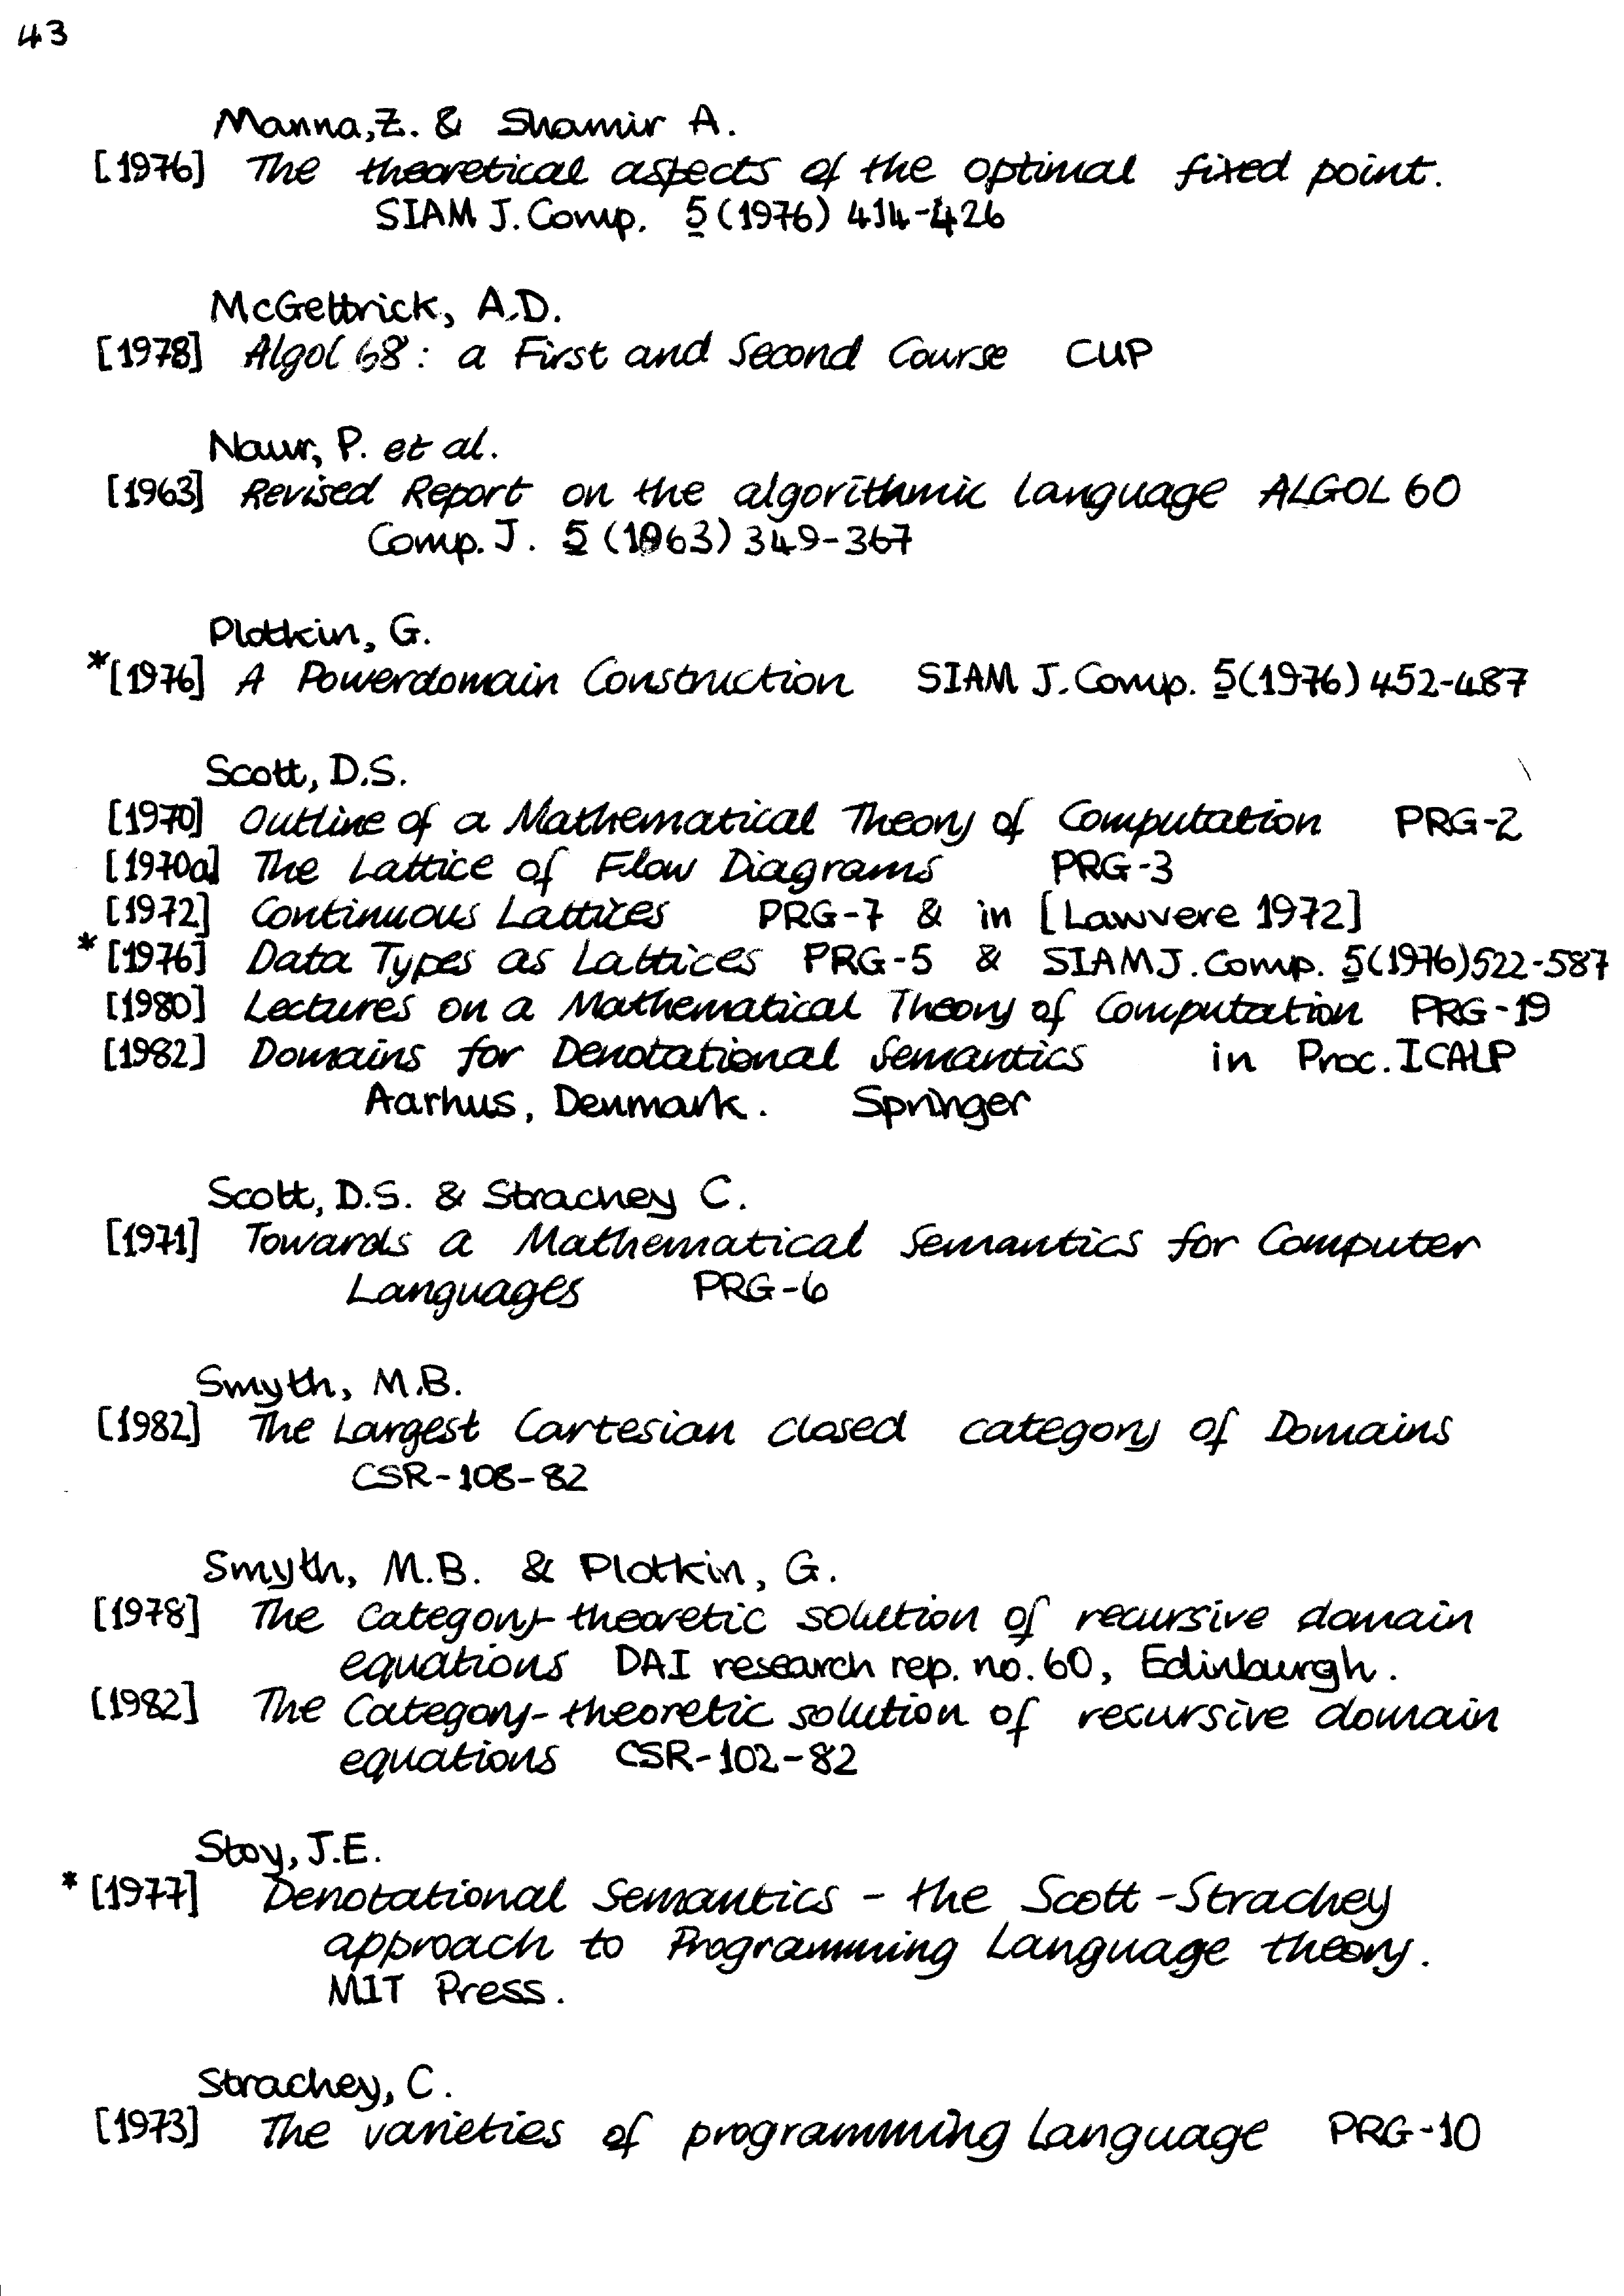 43
Manna, Z. & Shamir A.
[1976] The theoretical aspects of the optimal fixed point.
SIAM J. Comp. 5 (1976) 414-426
McGettrick, A.D.
[1978] Algol 68: a First and Second Course CUP
Naur, P. et al.
[1963] Revised Report on the algorithmic language ALGOL 60
Comp. J. 5 (1963) 349-367
Plotkin, G.
*[1976] A Powerdomain Construction SIAM J. Comp. 5 (1976) 452-487
Scott, D.S.
[1970] Outline of a Mathematical Theory of Computation PRG-2
[1970a] The Lattice of Flow Diagrams PRG-3
[1972] Continuous Lattices PRG-7 & in [Lawvere 1972]
*[1976] Data Types as Lattices PRG-5 & SIAM J. Comp. 5 (1976) 522-587
[1980] Lectures on a Mathematical Theory of Computation PRG-19
[1982] Domains for Denotational Semantics in Proc. ICALP
Aarhus, Denmark. Springer
Scott, D.S. & Strachey C.
[1971] Towards a Mathematical Semantics for Computer
Languages PRG-6
Smyth, M.B.
[1982] The Largest Cartesian closed category of Domains
CSR-108-82
Smyth, M.B. & Plotkin, G.
[1978] The Category-theoretic solution of recursive domain
equations DAI research rep. no. 60, Edinburgh.
[1982] The Category-theoretic solution of recursive domain
equations CSR-102-82
Stoy, J.E.
*[1977] Denotational Semantics - the Scott-Strachey
approach to Programming Language theory.
MIT Press.
Strachey, C.
[1973] The varieties of programming language PRG-10